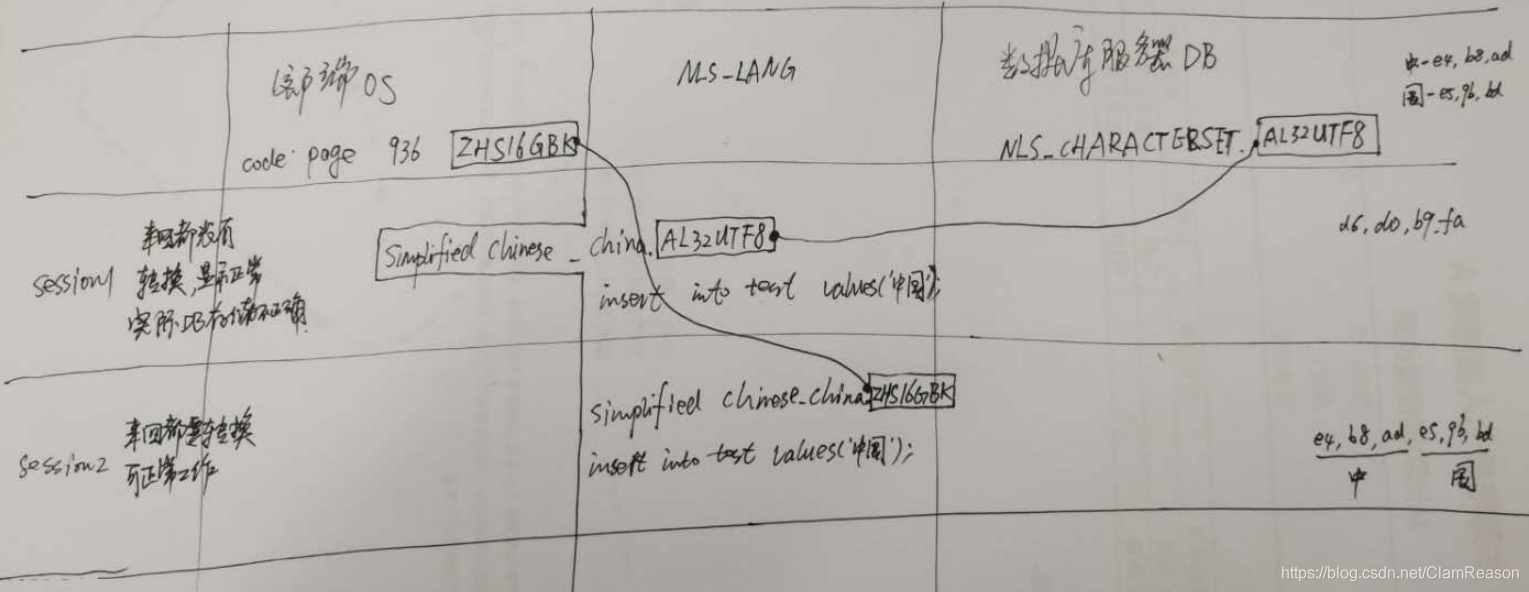 客户端OS
NLS_LANG
数据库服务器DB
中-e4,b8,ad
国-e5,9b,bd
code page 936 ZHS16GBK
NLS_CHARACTERSET. AL32UTF8
session1
来回都没有
转换,显示正常
实际DB存储不正确
Simplified Chinese_china.AL32UTF8
insert into test values('中国');
d6,d0,b9,fa
session2
来回都要转换
可正常工作
simplified chinese_china.ZHS16GBK
insert into test values('中国');
e4,b8,ad,e5,9b,bd
中 国
https://blog.csdn.net/ClamReason